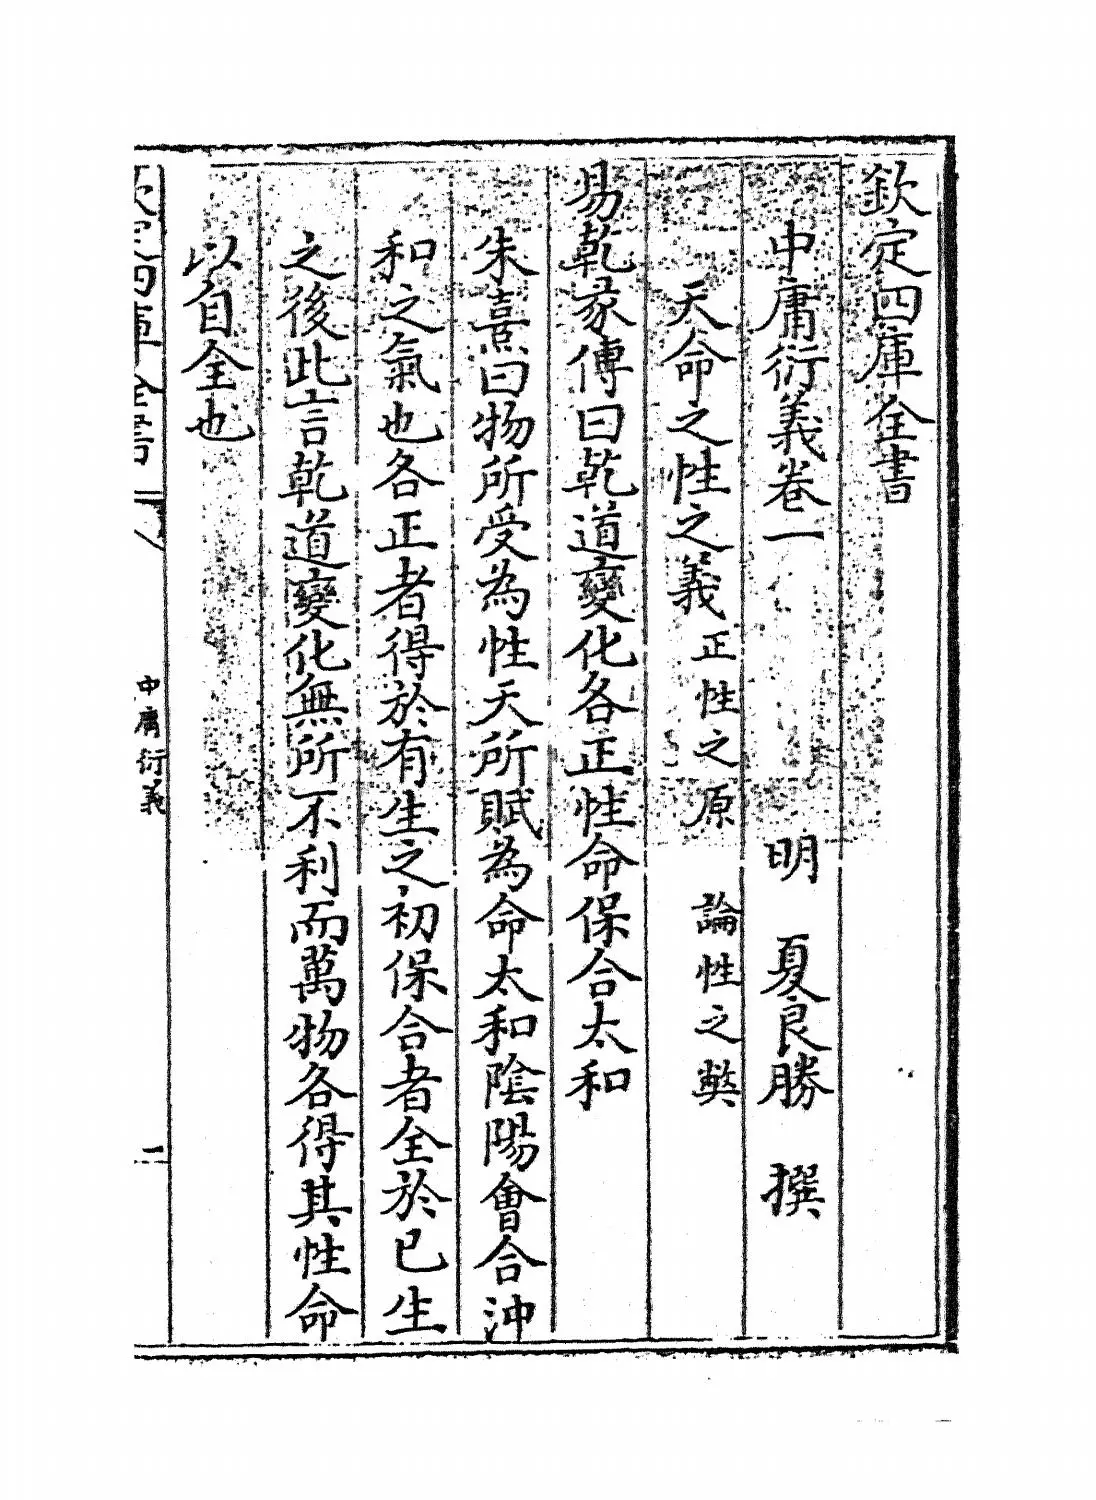 欽定四庫全書
中庸衍義卷一　明　夏良勝　撰
天命之性之義 正性之原　論性之獘
易乾彖傳曰乾道變化各正性命保合太和
朱熹曰物所受為性天所賦為命太和陰陽會合沖
和之氣也各正者得於有生之初保合者全於已生
之後此言乾道變化無所不利而萬物各得其性命
以自全也
欽定四庫全書
中庸衍義
二